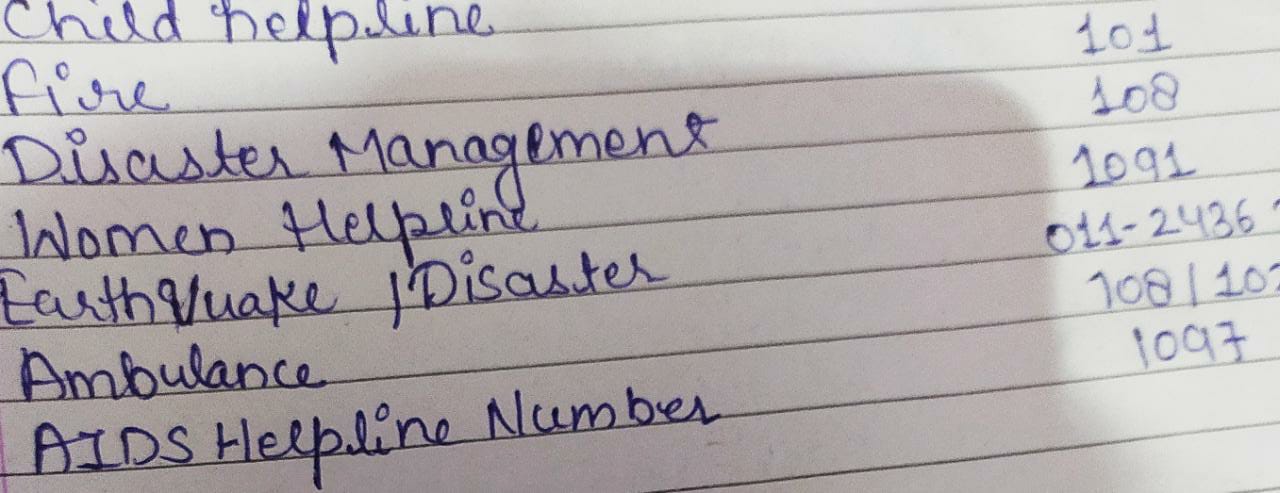 Child helpline
Fire 101
Disaster Management 108
Women Helpline 1091
EarthQuake / Disaster 011-2436
Ambulance 108/102
AIDS Helpline Number 1097